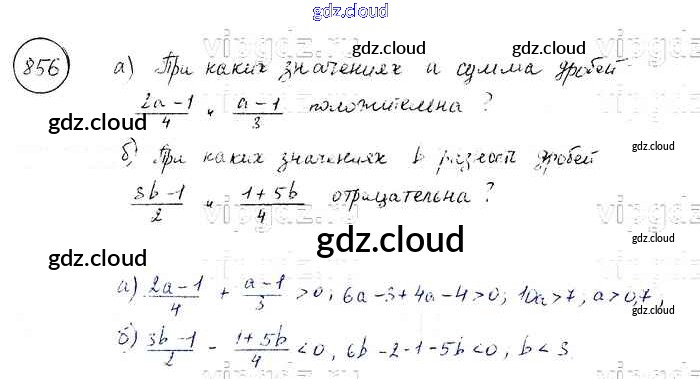 gdz.cloud
856 а) При каких значениях а сумма дробей
(2a-1)/4 и (a-1)/3 положительна?
б) При каких значениях b разность дробей
(3b-1)/2 и (1+5b)/4 отрицательна?
а) (2a-1)/4 + (a-1)/3 > 0; 6a-3+4a-4>0; 10a>7, a>0,7,
б) (3b-1)/2 - (1+5b)/4 < 0, 6b-2-1-5b<0, b<3
gdz.cloud
gdz.cloud
gdz.cloud
gdz.cloud
gdz.cloud
gdz.cloud
gdz.cloud
gdz.cloud